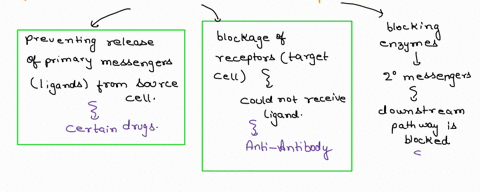 Preventing release
of primary messengers
(ligands) from source
cell.
certain drugs.
blockage of
receptors (target
cell)
could not receive
ligand.
Anti-Antibody
blocking
enzymes
2° messengers
downstream
pathway is
blocked